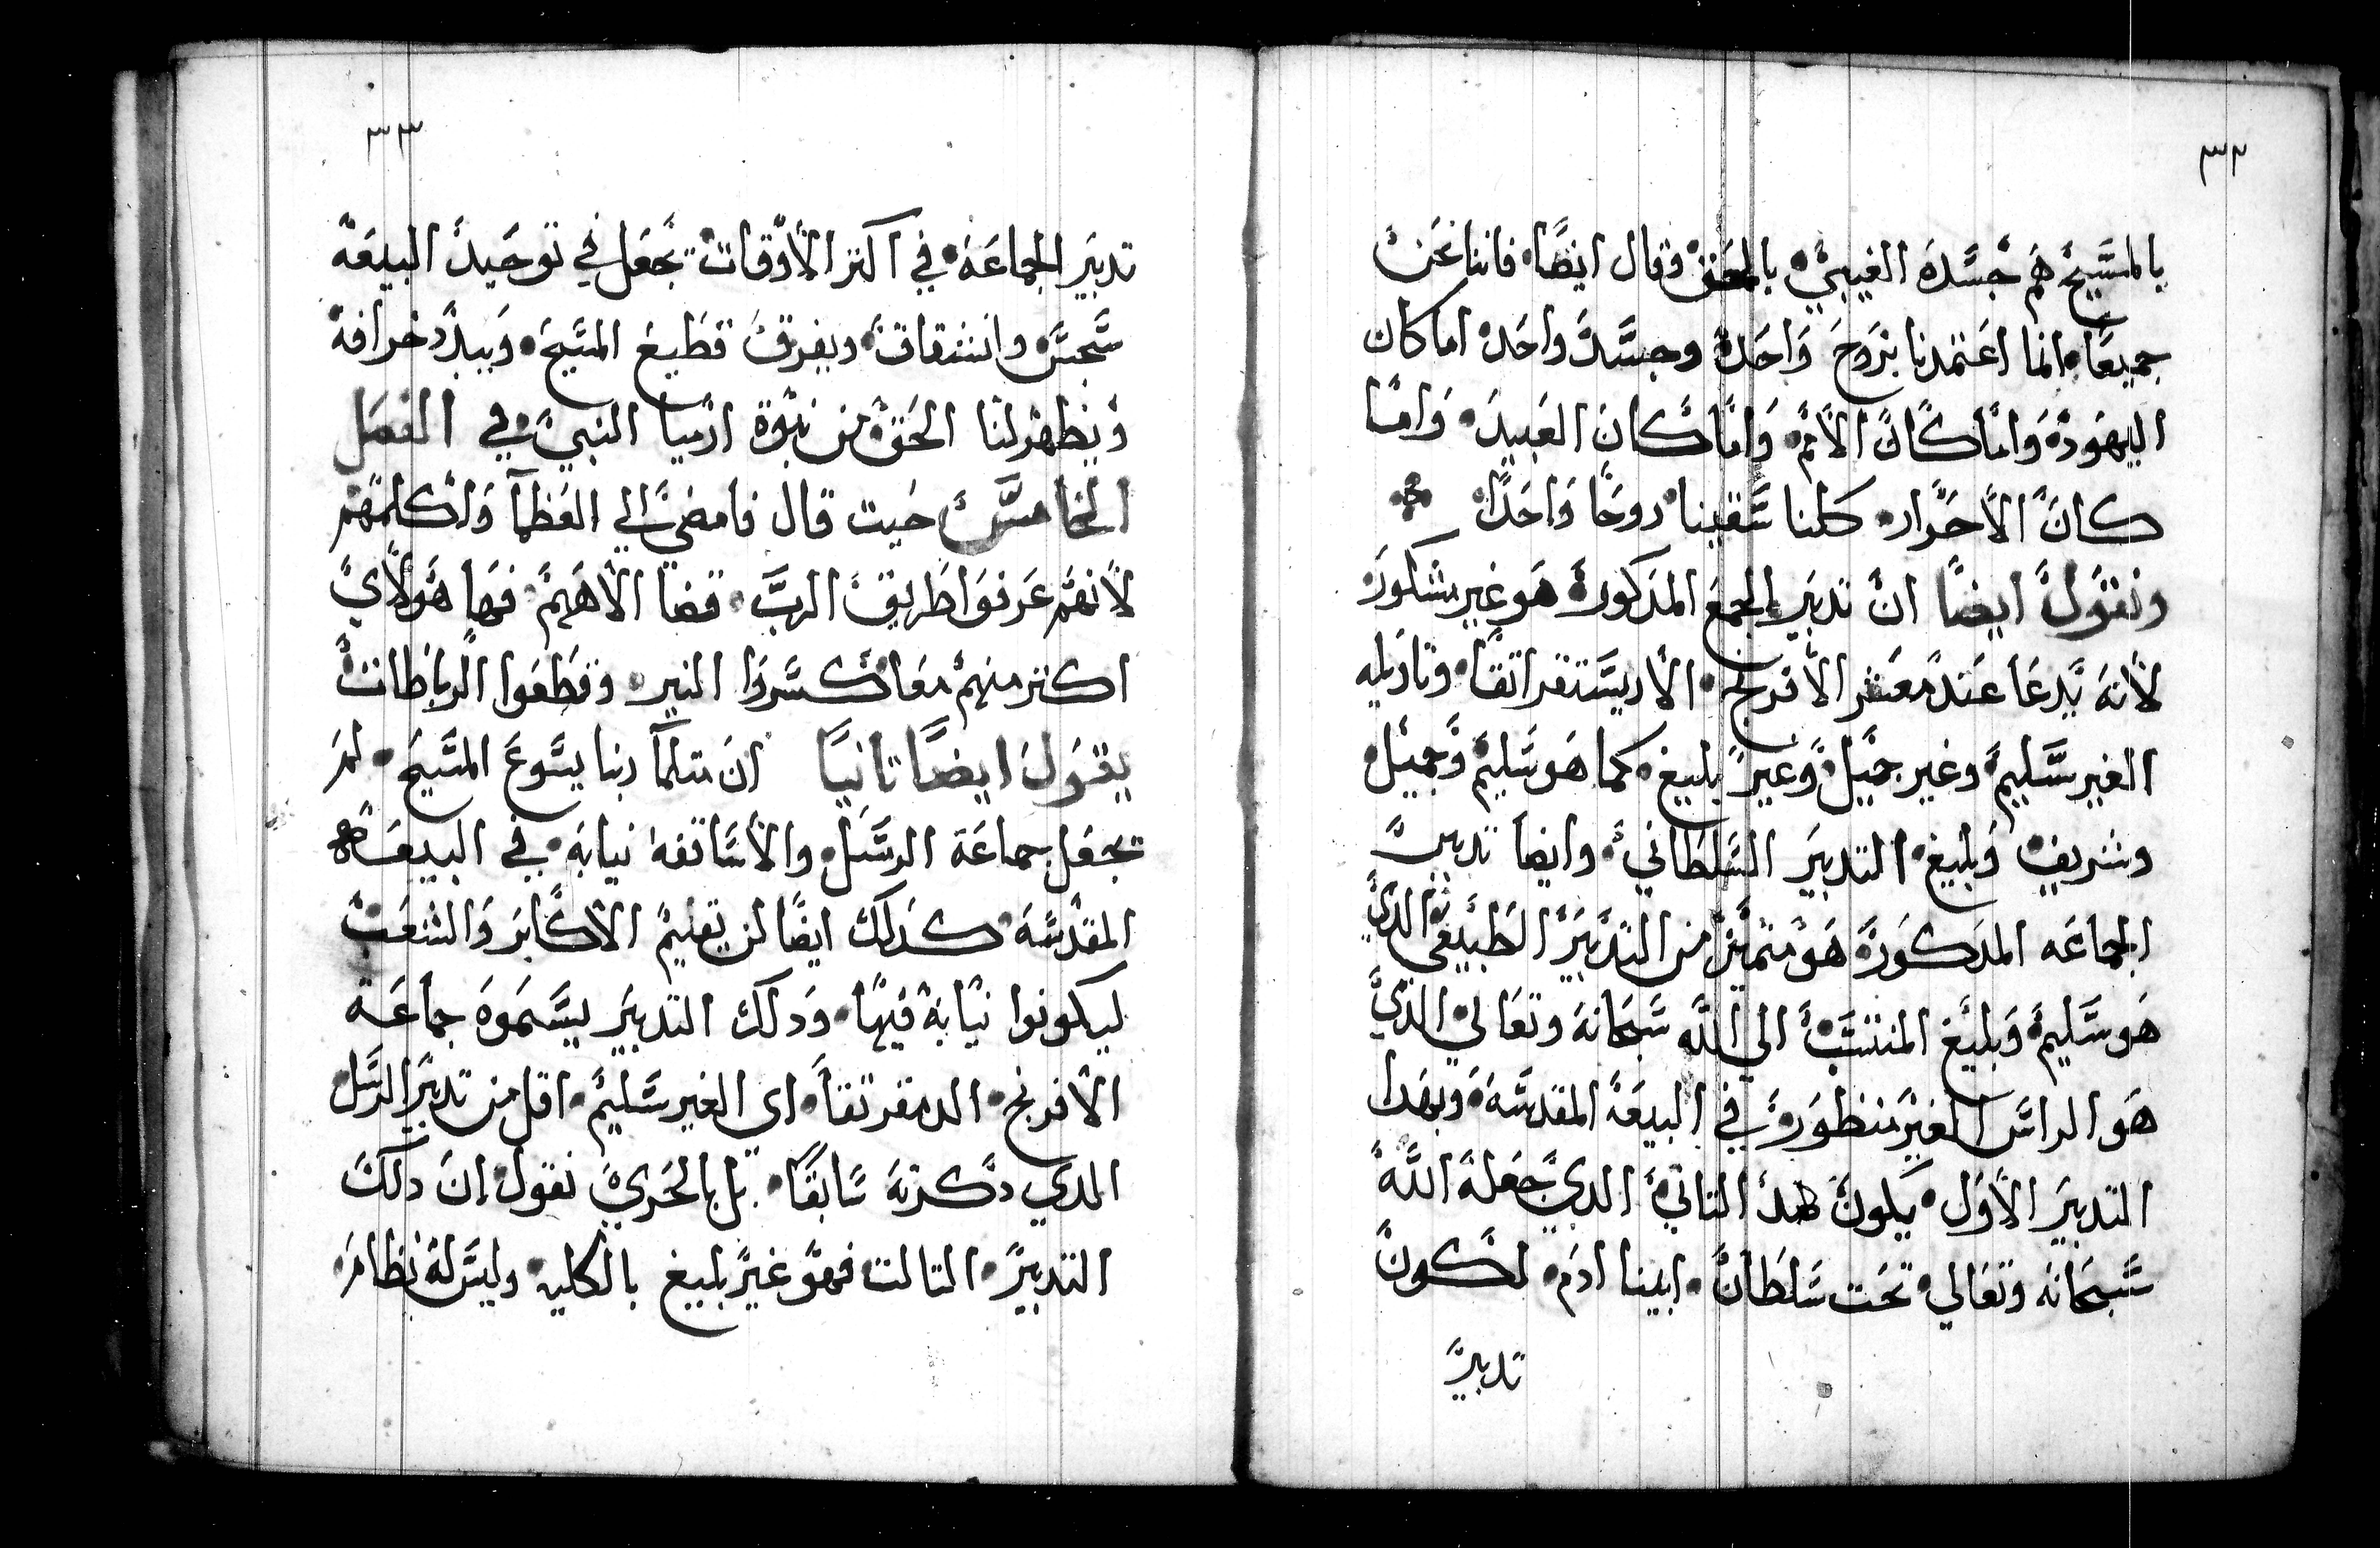 ٣٢
بالمسيح هم جسده الغيبي بالحق وقال ايضا فاننا نحن
جميعا انما اعتمدنا بروح واحدة وجسد واحد اما كان
اليهود واما كان الامم واما كان العبيد واما
كان الاحرار كلنا سقينا روحا واحدا
ونقول ايضا ان تدبير الجمع المذكورة هو غير مشكور
لانه يدعا عند معشر الافرنج الاريستقراتقا وتاويله
الغير سليم وغير جميل وغير بليغ كما هو سليم وجميل
وشريف وبليغ التدبير السلطاني وايضا تدبير
الجماعه المدكورة هو متميز من التدبير الطبيعي الدي
هو سليم وبليغ المنتسب الي الله سبحانه وتعالي الدي
هو الراس الغير منظورة في البيعة المقدسة وبهدا
التدبير الاول يكون هدا التاني الدي جعله الله
سبحانه وتعالي تحت سلطان ابينا ادم لكون
تدبير
٣٣
تدبير الجماعة في اكتر الاوقات تجعل في توحيد البيعة
سجس وانشقاق ويفرق قطيع المسيح ويبدد خرافه
ويظهر لنا الحق من نبوة ارميا النبي في الفصل
الخامس حيت قال فامضي الي العظما واكلمهم
لانهم عرفوا طريق الرب قضا الاههم فها هولاي
اكتر منهم معا كسروا النير وقطعوا الرباطات
يقول ايضا تانيا ان متلما ربنا يسوع المسيح لم
تجعل جماعة الرسل والاساقفه نيابة في البيعة
المقدسة كدلك ايضا لن يقيم الاكابر والشعب
ليكونوا نيابة فيها ودلك التدبير يسموه جماعة
الافرنج الدمقرتقا اى الغير سليم اقل من تدبير الرسل
المدي دكرته سابقا بل بالحري نقول ان دلك
التدبير التالت فهو غير بليغ بالكليه وليس له نظام